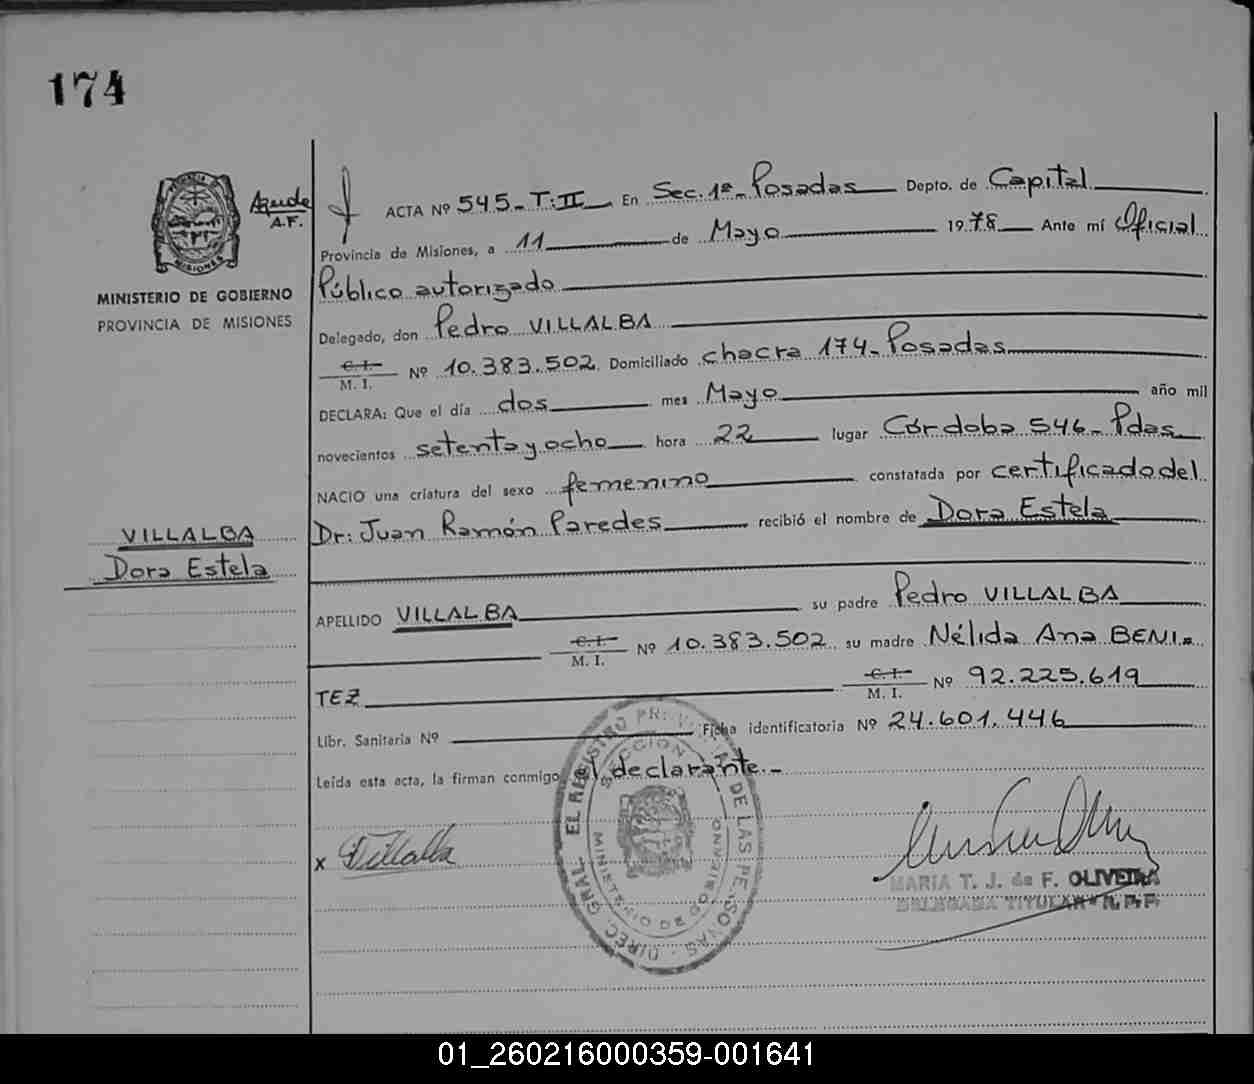 174
PROVINCIA DE MISIONES
Agude
A.F.
MINISTERIO DE GOBIERNO
PROVINCIA DE MISIONES
ACTA Nº 545-T:II En Sec. 1ª- Posadas Depto. de Capital
Provincia de Misiones, a 11 de Mayo 1978 Ante mí Oficial
Público autorizado
Delegado, don Pedro VILLALBA
C.I.
M. I. Nº 10.383.502 Domiciliado chacra 174- Posadas
DECLARA: Que el día dos mes Mayo año mil
novecientos setenta y ocho hora 22 lugar Córdoba 546- Pdas
NACIO una criatura del sexo femenino constatada por certificado del
Dr: Juan Ramón Paredes recibió el nombre de Dora Estela
VILLALBA
Dora Estela
APELLIDO VILLALBA su padre Pedro VILLALBA
C.I.
M. I. Nº 10.383.502 su madre Nélida Ana BENI=
TEZ C.I.
M. I. Nº 92.225.619
Libr. Sanitaria Nº Ficha identificatoria Nº 24.601.446
Leída esta acta, la firman conmigo el declarante.-
x Villalba
DIREC. GRAL. EL REGISTRO PROVINCIAL DE LAS PERSONAS
SECCION
MINISTERIO DE GOBIERNO
MARIA T. J. de F. OLIVEIRA
DELEGADA TITULAR R. P. P.
01_260216000359-001641